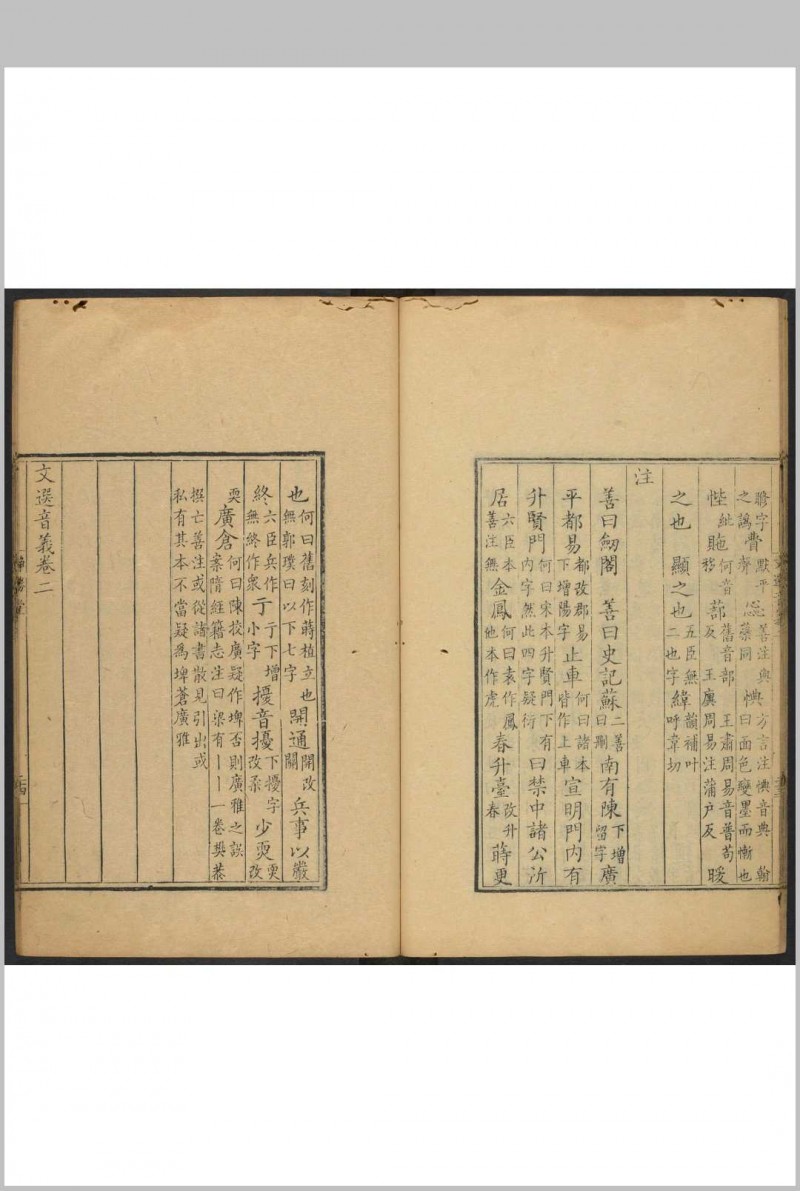 瞻字之譌 費默平齊 㤟善注與蘂同 惧方言注㥏音典曰面色變墨而慚也 翰
恎紕 貤何音移 蔀舊音部反 王廙周易注蒲戶反 王肅周易音普苟 暖
之也 顯之也五臣無二也字 緯韻補叶呼韋切
注
善曰劒閣 善曰史記蘇二善曰刪 南有陳下增留字 廣
平都易都改郡易下增陽字 止車何曰諸本皆作上車 宣明門內有
升賢門何曰宋本升賢門下有內字然此四字疑衍 曰禁中諸公所
居六臣本善注無 金鳳何曰袁作鳳他本作虎 春升臺改升春 蒔更
也何曰舊刻作蒔植立也無郭璞曰以下七字 開通開改關 兵事以嚴
終六臣兵作無終作衆 于于下增小字 擾音擾下擾字改柔 少耎耎改
耎 廣倉何曰陳挍廣疑作埤否則廣雅之誤案隋經籍志注曰梁有丨丨一卷樊恭
撰亡善注或從諸書散見引出或私有其本不當疑爲埤蒼廣雅
文選音義卷二